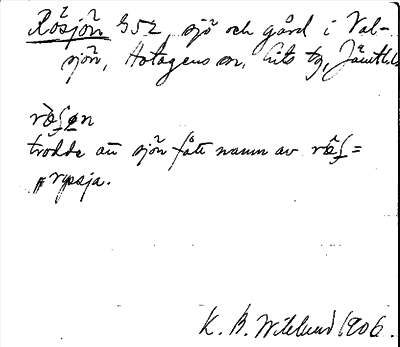 Rösjön G52, sjö och gård i Val-
sjön, Hotagens sn, Lits tg, Jämtl.
trodde att sjön fått namn av
ryssja.
K. B. Wiklund 1906.